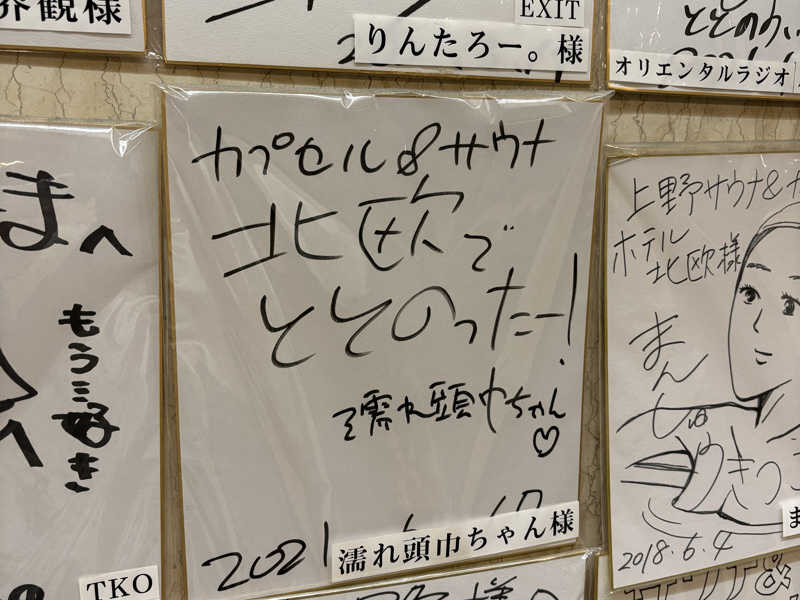 界観様
EXIT
りんたろー。様
ととのい
オリエンタルラジオ
まへ
もう…好き
TKO
カプセル&サウナ
北欧で
ととのったー!
濡れ頭巾ちゃん
♡
2021
濡れ頭巾ちゃん様
上野サウナ&
ホテル
北欧様
まん
しゅう
きつ
2018.6.4
ま